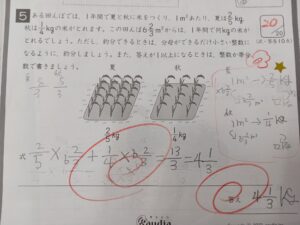 5 ある田んぼでは、1年間で夏と秋に米をつくり、1m²あたり、夏は2/5kg、
秋は1/4kgの米がとれます。この田んぼ6 2/3m²からは、1年間で何kgの米が
とれるでしょう。ただし、約分できるときは、分母ができるだけ小さい整数に
なるように、約分しましょう。また、答えが1以上になるときは、整数か帯分
数で書きましょう。
20
/20
夏
秋
2/5 kg
1/4 kg
夏
1m² → 2/5 kg
秋
1m² → 1/4 kg
式 2/5 × 6 2/3 + 1/4 × 6 2/3 = 13/3 = 4 1/3
答え 4 1/3 kg
Gaudia